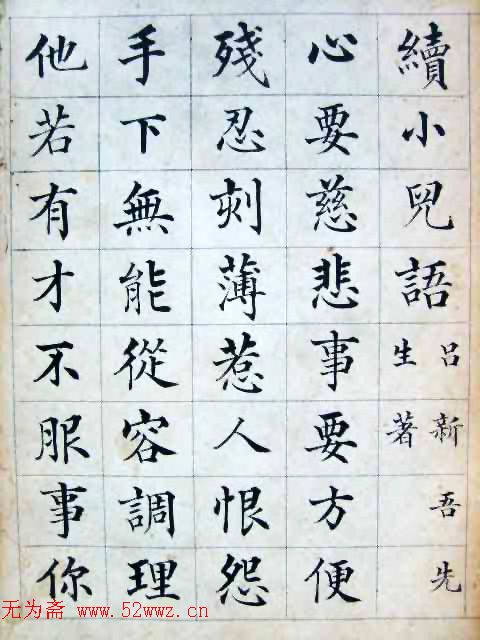 續小兒語
呂新吾先
生著
心要慈悲事要方便
殘忍刻薄惹人恨怨
手下無能從容調理
他若有才不服事你
无为斋 www.52wwz.cn